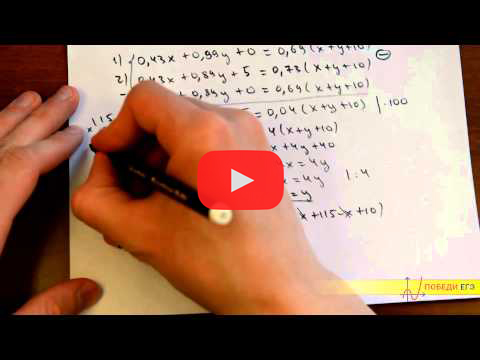 1) 0,43x + 0,89y + 0 = 0,69(x+y+10)
2) 0,43x + 0,89y + 5 = 0,73(x+y+10)
+ 0,89y + 0 = 0,69(x+y+10)
5 = 0,04(x+y+10) |·100
4(x+y+10)
x + 4y + 40
x = 4y
= 4y |:4
= y
x + 115 - x + 10)
115
ПОБЕДИ ЕГЭ